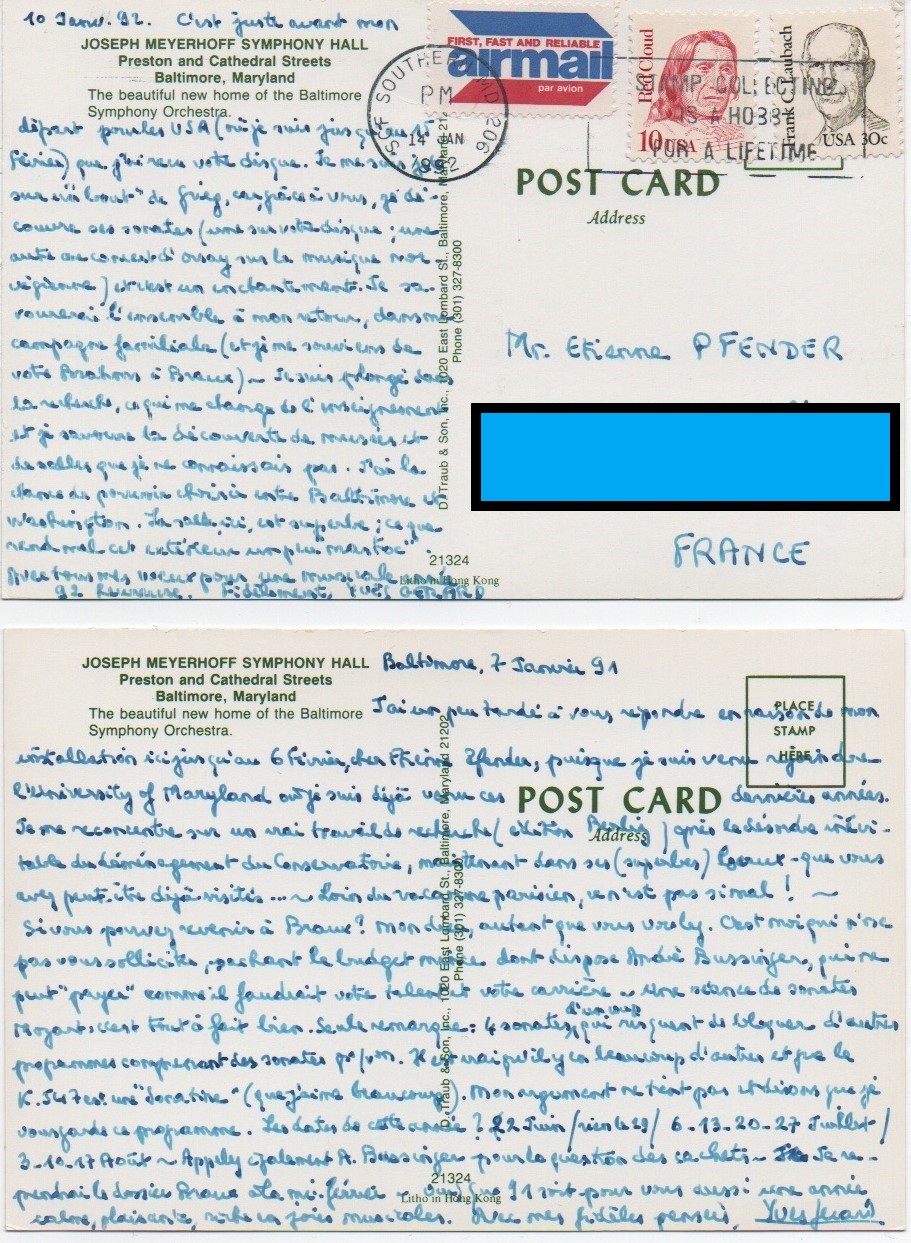 10 Janv. 92. C'est juste avant mon
JOSEPH MEYERHOFF SYMPHONY HALL
Preston and Cathedral Streets
Baltimore, Maryland
The beautiful new home of the Baltimore
Symphony Orchestra.
départ pour les USA (où je suis jusqu'au 15
Février) que j'ai reçu votre disque. Je me suis
sur "un bout" de Grieg, car, grâce à vous, je dé-
couvre ses sonates (une sur votre disque ; une
autre au concert d'Orsay sur la musique nor-
végienne) et c'est un enchantement. Je sa-
vourerai l'ensemble à mon retour, dans ma
campagne familiale (et je me souviens de
votre Brahms à Braux) ~ Je suis plongé dans
la recherche, ce qui me change de l'enseignement
et je savoure la découverte de musées et
de salles que je ne connaissais pas. J'ai la
chance de pouvoir choisir entre Baltimore et
Washington. La salle, ici, est superbe ; ce que
rend mal cet extérieur un peu "mastoc".
Avec tous mes voeux pour une musicale année
92 heureuse. Fidèlement, YVES GERARD
FIRST, FAST AND RELIABLE
airmail
par avion
SCF SOUTHERN MD 206
PM
14 JAN
1992
STAMP COLLECTING
IS A HOBBY
FOR A LIFETIME
Red Cloud
10c USA
Frank C. Laubach
USA 30c
POST CARD
Address
D. Traub & Son, Inc., 1020 East Lombard St., Baltimore, Maryland 21
Phone (301) 327-8300
Mr. Etienne PFENDER
FRANCE
21324
Litho in Hong Kong
JOSEPH MEYERHOFF SYMPHONY HALL
Preston and Cathedral Streets
Baltimore, Maryland
The beautiful new home of the Baltimore
Symphony Orchestra.
Baltimore, 7 Janvier 91
PLACE
STAMP
HERE
POST CARD
Address
J'ai un peu tardé à vous répondre en raison de mon
installation ici jusqu'au 6 Février, cher Etienne Pfender, puisque je suis venu rejoindre
l'University of Maryland où je suis déjà venu ces dernières années.
Je me reconcentre sur un vrai travail de recherche (édition Berlioz) après le désordre inévi-
table du déménagement du Conservatoire, maintenant dans ses (superbes) locaux - que vous
avez peut-être déjà visités ... ~ Loin du vacarme parisien, ce n'est pas si mal ! ~
Si vous pouvez revenir à Braux ? Mon dieu, autant que vous voulez. C'est moi qui n'ose
pas vous solliciter, sachant le budget mince dont dispose André Bussinger, qui ne
peut "payer" comme il faudrait votre talent et votre carrière ~ Une séance de sonates
Mozart : c'est tout à fait bien. Seule remarque : 4 sonates d'un coup, qui risquent de bloquer d'autres
programmes comprenant des sonates po/vn. Il est vrai qu'il y en a beaucoup d'autres et que le
K. 547 est une "Sonatine" (que j'aime beaucoup). Mon argument ne tient pas et disons que je
vous garde ce programme. Les dates de cette année ? 22 Juin / rien le 29 / 6-13-20-27 Juillet /
3-10-17 Août ~ Appelez également A. Bussinger pour la question des cachets ~ Je re-
prendrai le dossier Braux à la mi-février ~ Que 91 soit pour vous aussi une année
calme, plaisante, riche en joies musicales. Avec mes fidèles pensées, Yves Gérard
D. Traub & Son, Inc., 1020 East Lombard St., Baltimore, Maryland 21202
Phone (301) 327-8300
21324
Litho in Hong Kong